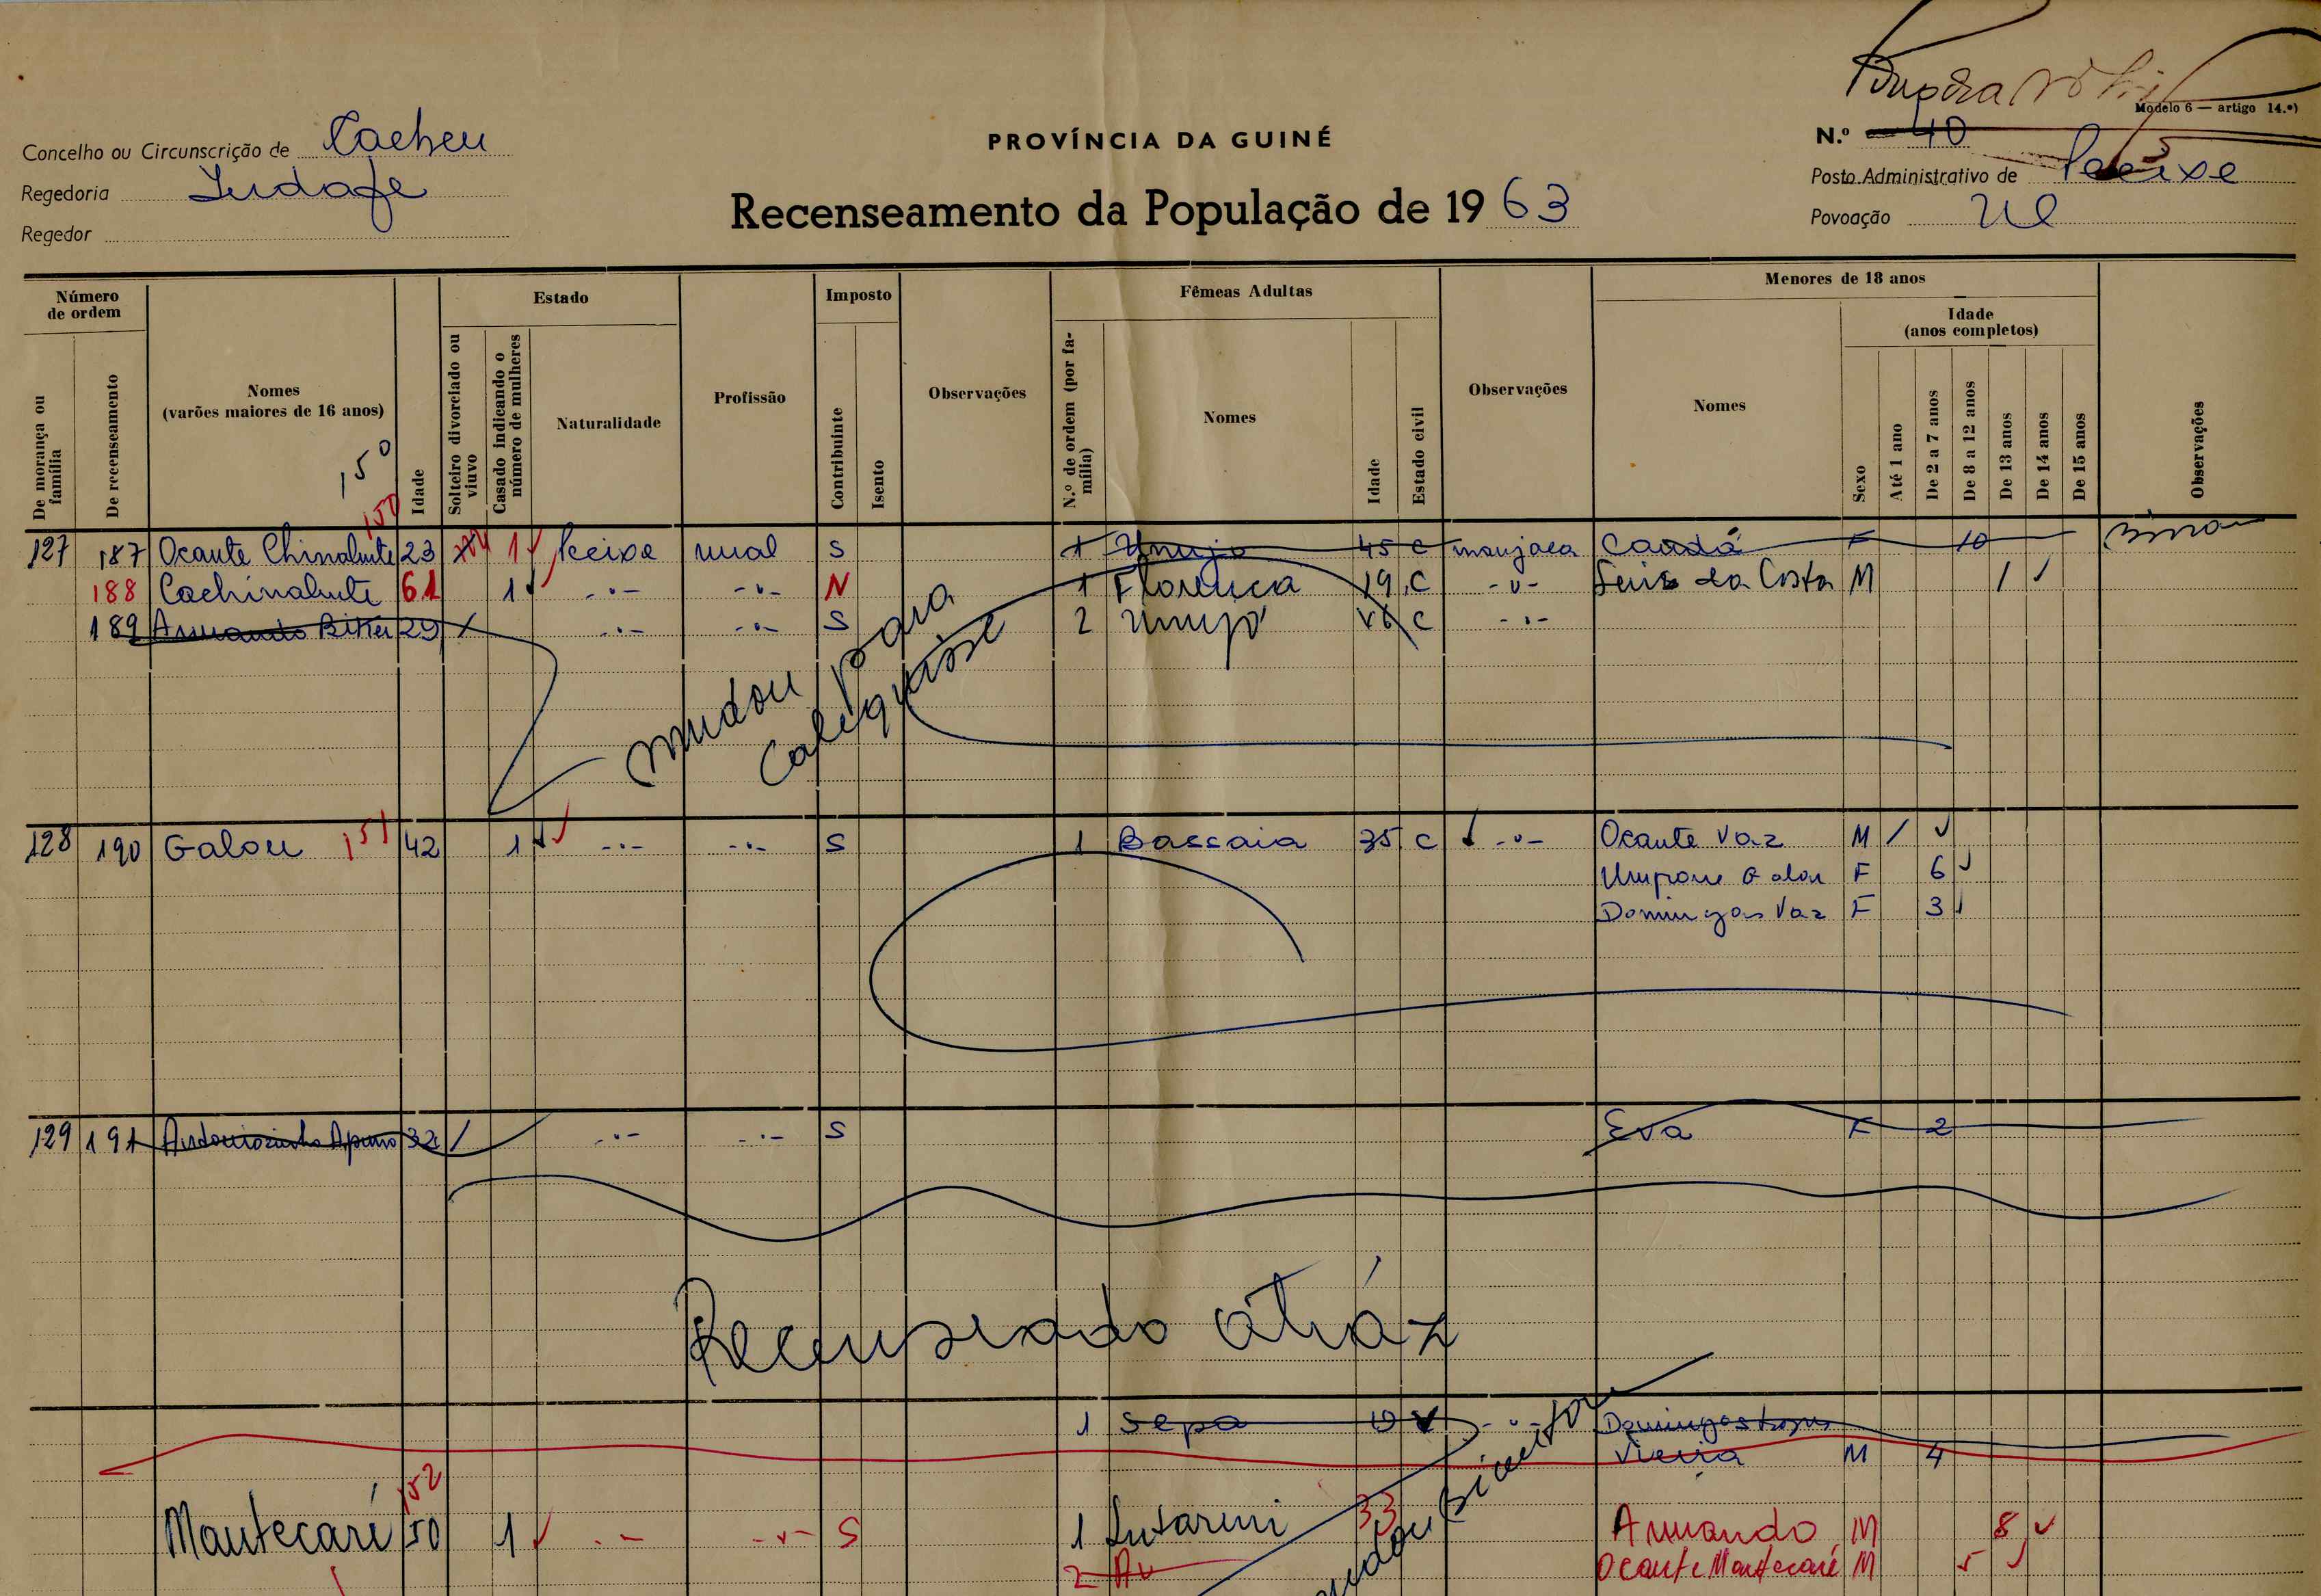 Modelo 6 — artigo 14.º)
Concelho ou Circunscrição de Cacheu
PROVÍNCIA DA GUINÉ
N.º 40
Regedoria
Posto Administrativo de
Recenseamento da População de 1963
Regedor
Povoação
Número de ordem
Estado
Imposto
Fêmeas Adultas
Menores de 18 anos
Idade (anos completos)
De morança ou família
De recenseamento
Nomes (varões maiores de 16 anos)
Idade
Solteiro divorciado ou viuvo
Casado indicando o número de mulheres
Naturalidade
Profissão
Contribuinte
Isento
Observações
N.º de ordem (por família)
Nomes
Idade
Estado civil
Observações
Nomes
Sexo
Até 1 ano
De 2 a 7 anos
De 8 a 12 anos
De 13 anos
De 14 anos
De 15 anos
Observações
150
150
127 187 Ocante Chinabute 23 1 S 1 45 C manjaca F 10
188 Cachinabute 61 1 N 1 Florença 19 C da Costa M 1
189 Armando 29 S 2 C
mudou para
128 190 Galou 151 42 1 S 1 Bassaia 35 C Ocante Vaz M
F 6
Domingas Vaz F 3
129 191 32 S Eva F 2
Recenseado atráz
1 Sepa
Vieira M 4
152
Mantecaré 50 1 S 1 33 Armando M 8
2 Ocante Mantecaré M